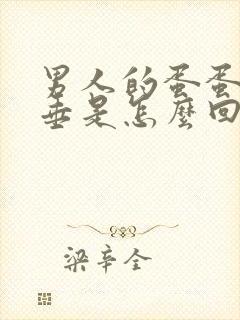 男人的蛋蛋
垂是怎麼回
梁辛全